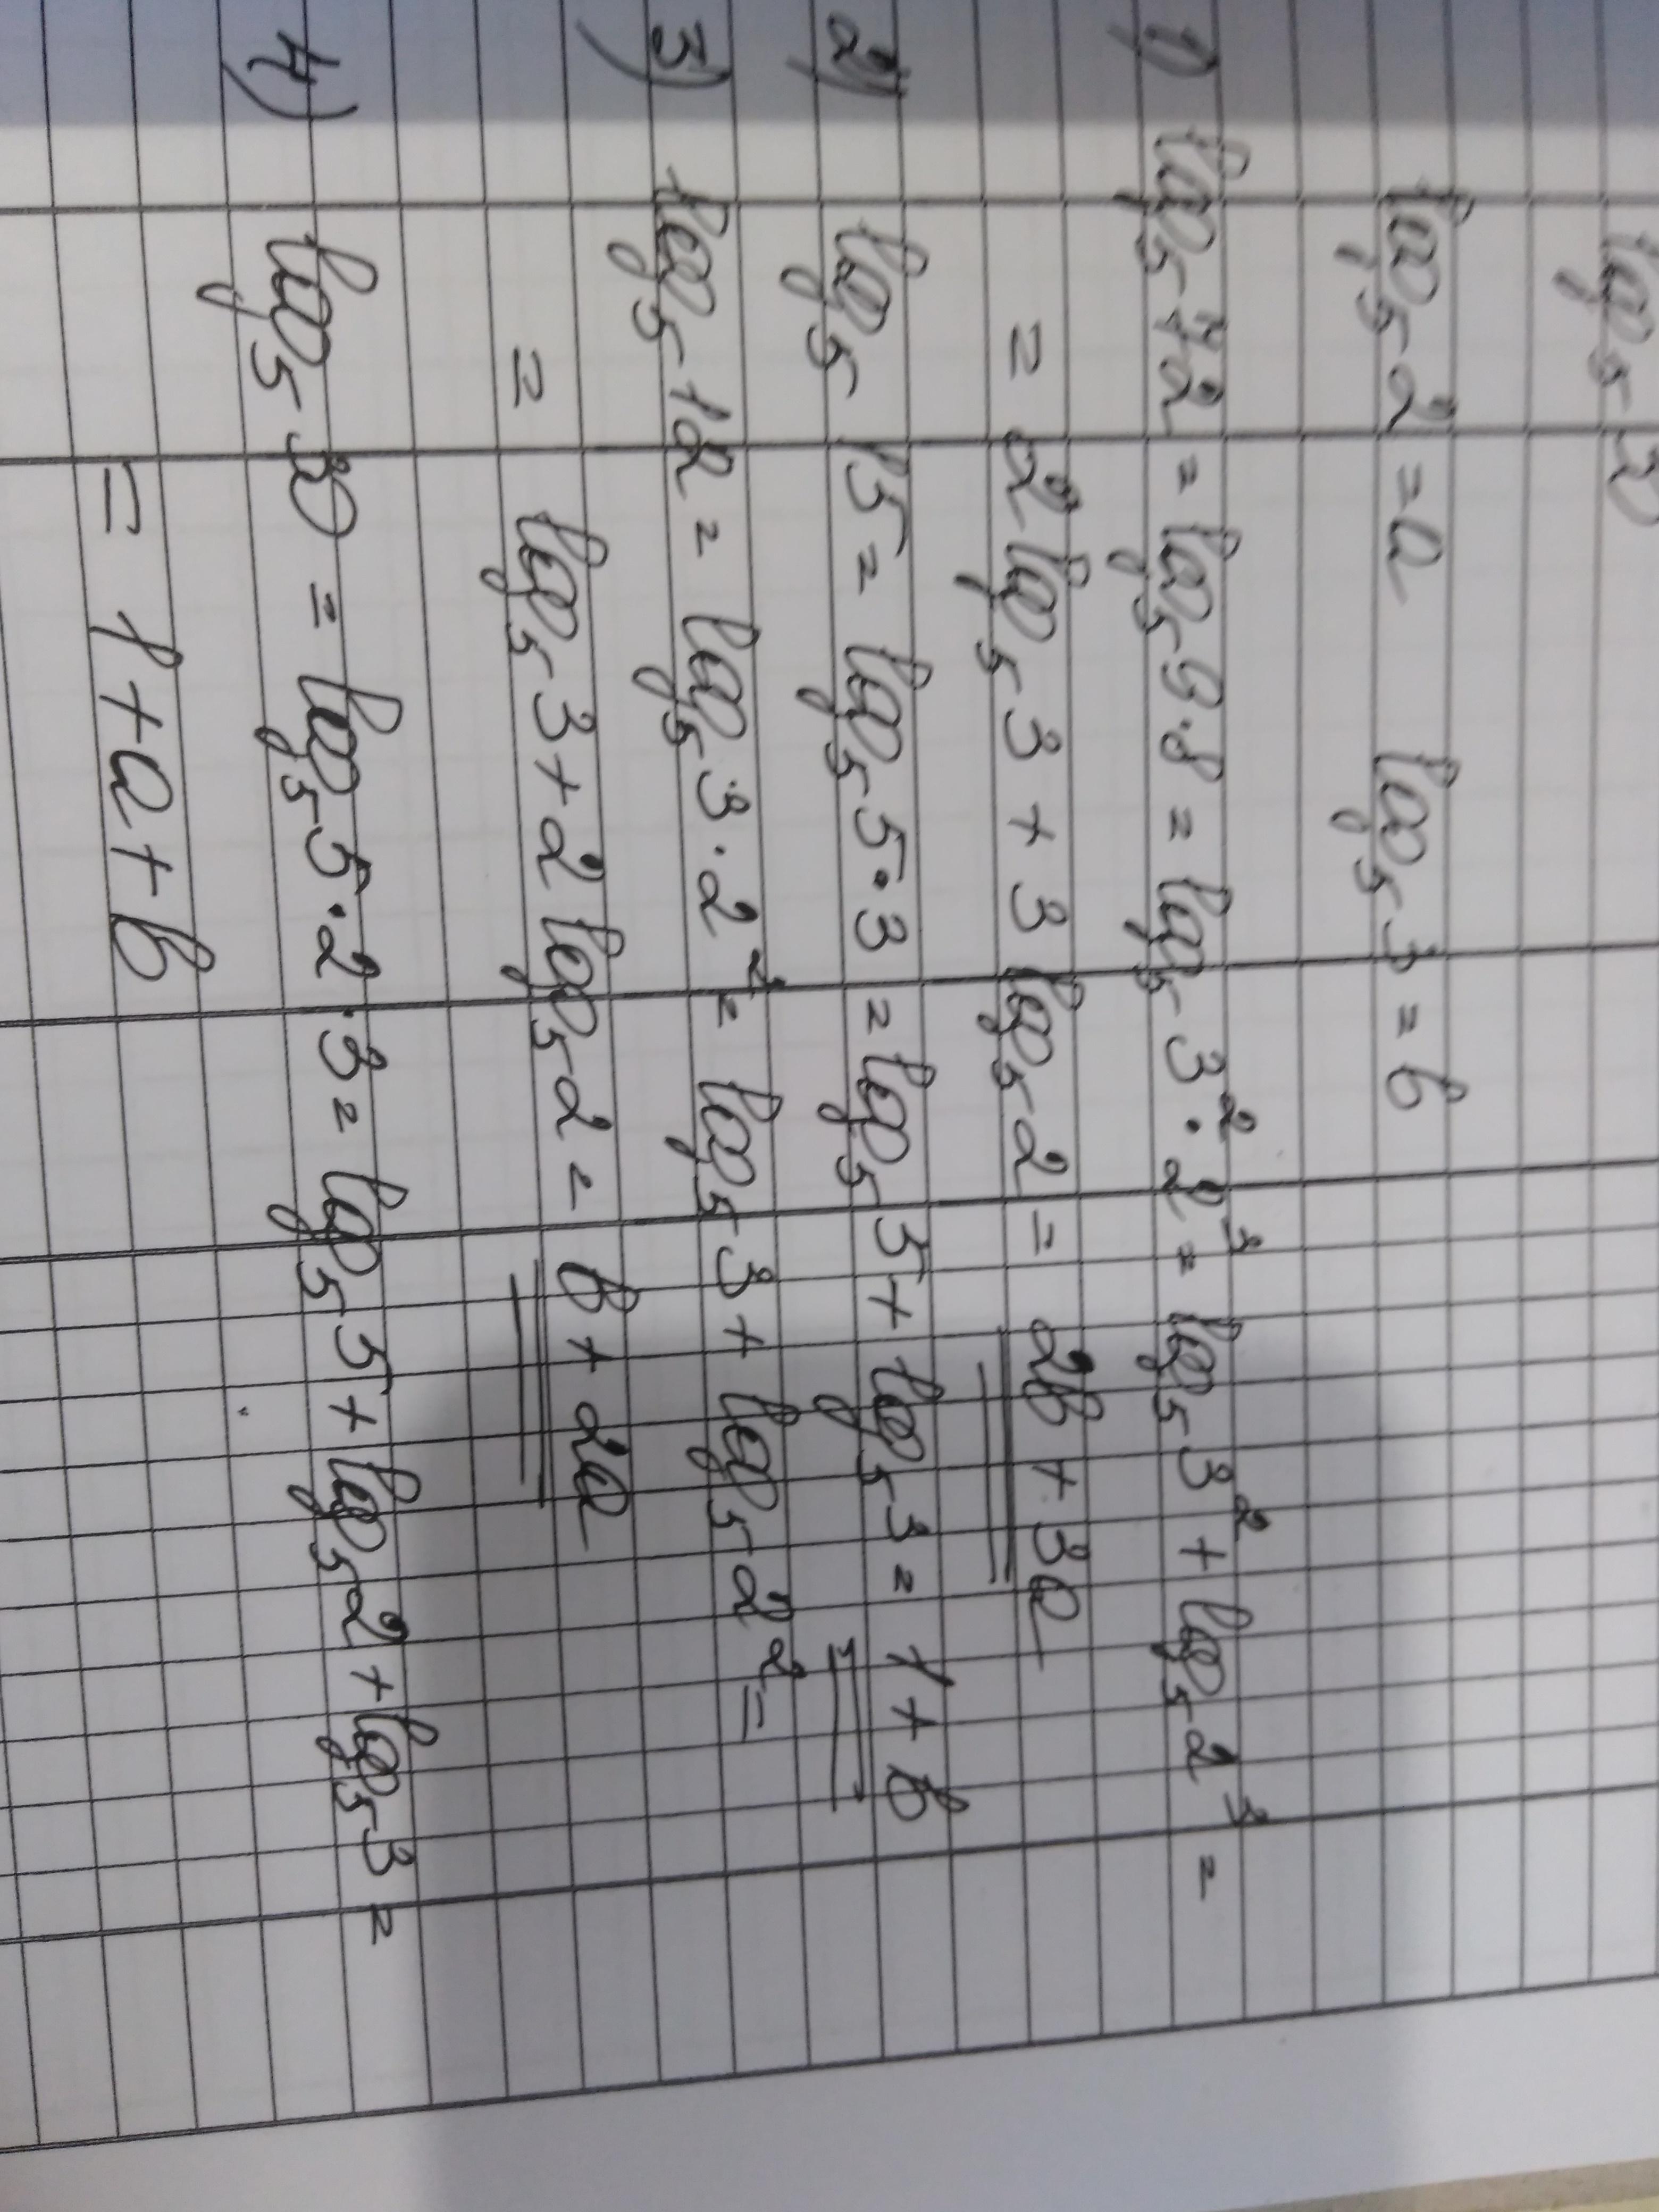 log₅ 30
log₅ 2 = a log₅ 3 = b
1) log₅ 72 = log₅ 9·8 = log₅ 3²·2³ = log₅ 3² + log₅ 2³ =
= 2 log₅ 3 + 3 log₅ 2 = 2b + 3a
2) log₅ 15 = log₅ 5·3 = log₅ 5 + log₅ 3 = 1 + b
3) log₅ 12 = log₅ 3·2² = log₅ 3 + log₅ 2² =
= log₅ 3 + 2 log₅ 2 = b + 2a
4) log₅ 30 = log₅ 5·2·3 = log₅ 5 + log₅ 2 + log₅ 3 =
= 1 + a + b